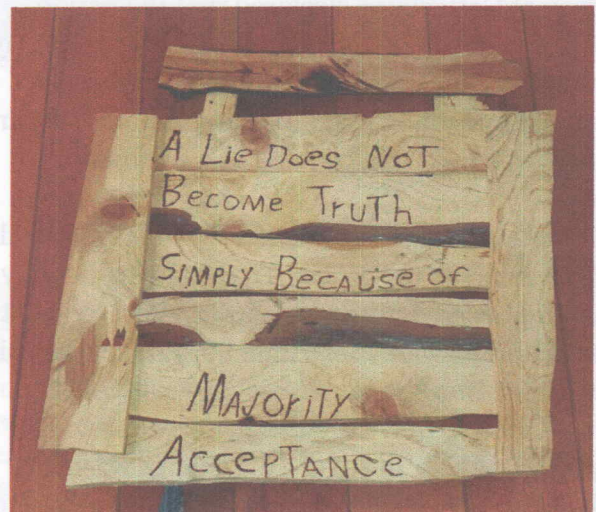 A Lie Does NoT
Become TruTh
SIMPLY Because of
MAJOrITY
AccepTANce